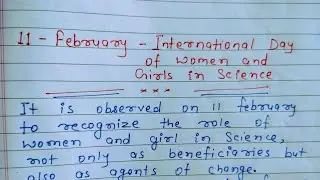 11 - February - International Day
of women and
Girls in Science
It is observed on 11 february
to recognize the role of
women and girl in Science,
not only as beneficiaries but
also as agents of change.